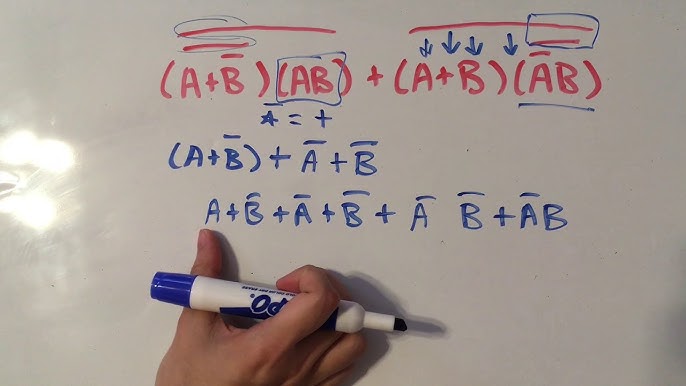 (A+B̅)(AB) + (A+B)(A̅B)
A̅ = +
(A+B̅) + A̅ + B̅
A+B̅+A̅+B̅ + A̅ B̅+A̅B
EXPO